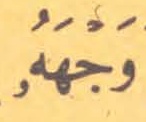 وَجْهَهُ